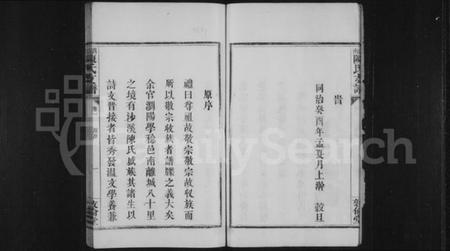 旹
同治癸酉年孟夏月上澣 穀旦
原序
禮曰尊祖故敬宗敬宗故收族而
所以敬宗收族者譜牒之義大矣
余官瀏陽學稔邑南離城八十里
之境有沙溪陳氏盛族其諸生以
詩文晉接者皆秀發溫文學養兼
陳氏族譜
FamilySearch